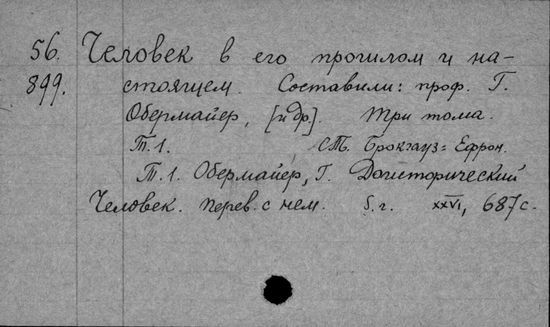 56. Человек в его прошлом и на-
899. стоящем. Составили: проф. Г.
Обермайер, [и др]. Три тома.
Т.1. СПб. Брокгауз=Ефрон.
Т.1. Обермайер, Г. Доисторический
Человек. Перев. с нем. б.г. XXVI, 687с.